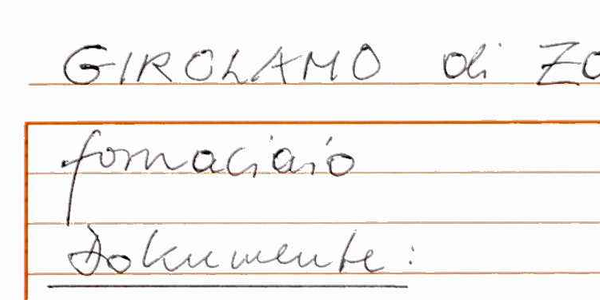 GIROLAMO di ZO
fornaciaio
Dokumente: